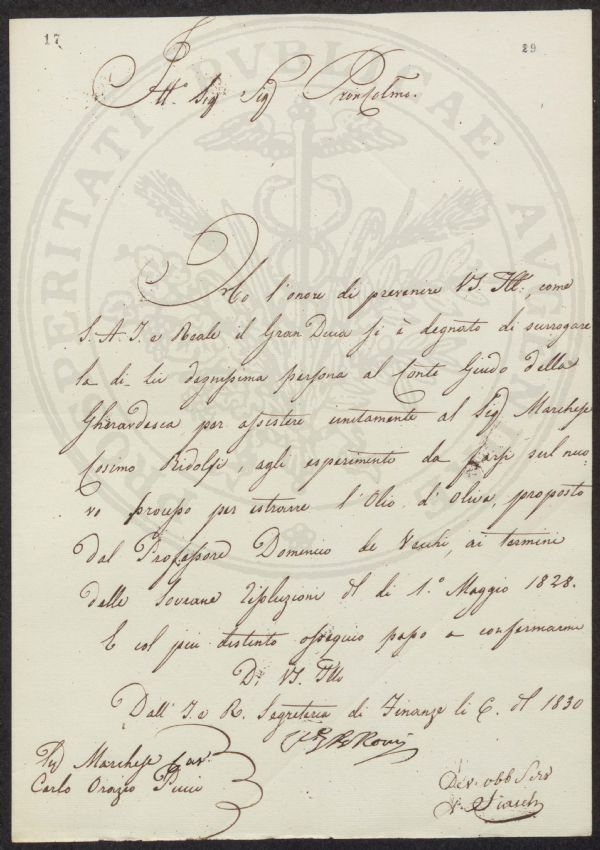 17
29
Ill.º Sig Sig Pron Colmo.
Ho l'onore di prevenire VS. Ill:, come
S. A. I. e Reale il Gran Duca si è degnato di surrogare
la di-lei degnissima persona al Conte Guido della
Gherardesca per assistere unitamente al Sig Marchese
Cosimo Ridolfi, agli esperimenti da farsi sul nuo-
vo processo per estrarre l'Olio d'Oliva, proposto
dal Professore Domenico de Vecchi, ai termini
delle Sovrane Risoluzioni del dì 1.º Maggio 1828.
E col piu distinto ossequio passo a confermarmi
Di VS. Illa
Dall' I. e R. Segreteria di Finanze li 6. 1830
Sig Marchese Cav.
Carlo Orazio Pucci
Dev. obb Serv